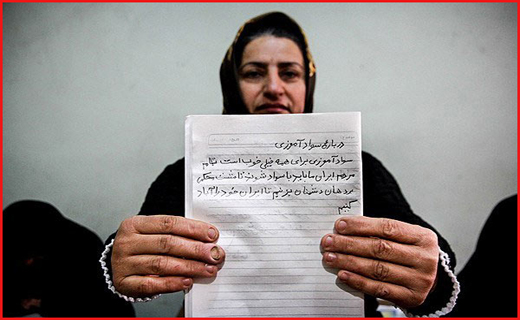 درباره‌ی سواد آموزی
سواد آموزی برای همه خیلی خوب است تمام
مردم ایران ما باید با سواد شوند تا مشت محکمی
بر دهان دشمنان بزنیم تا ایران خود را آباد
کنیم